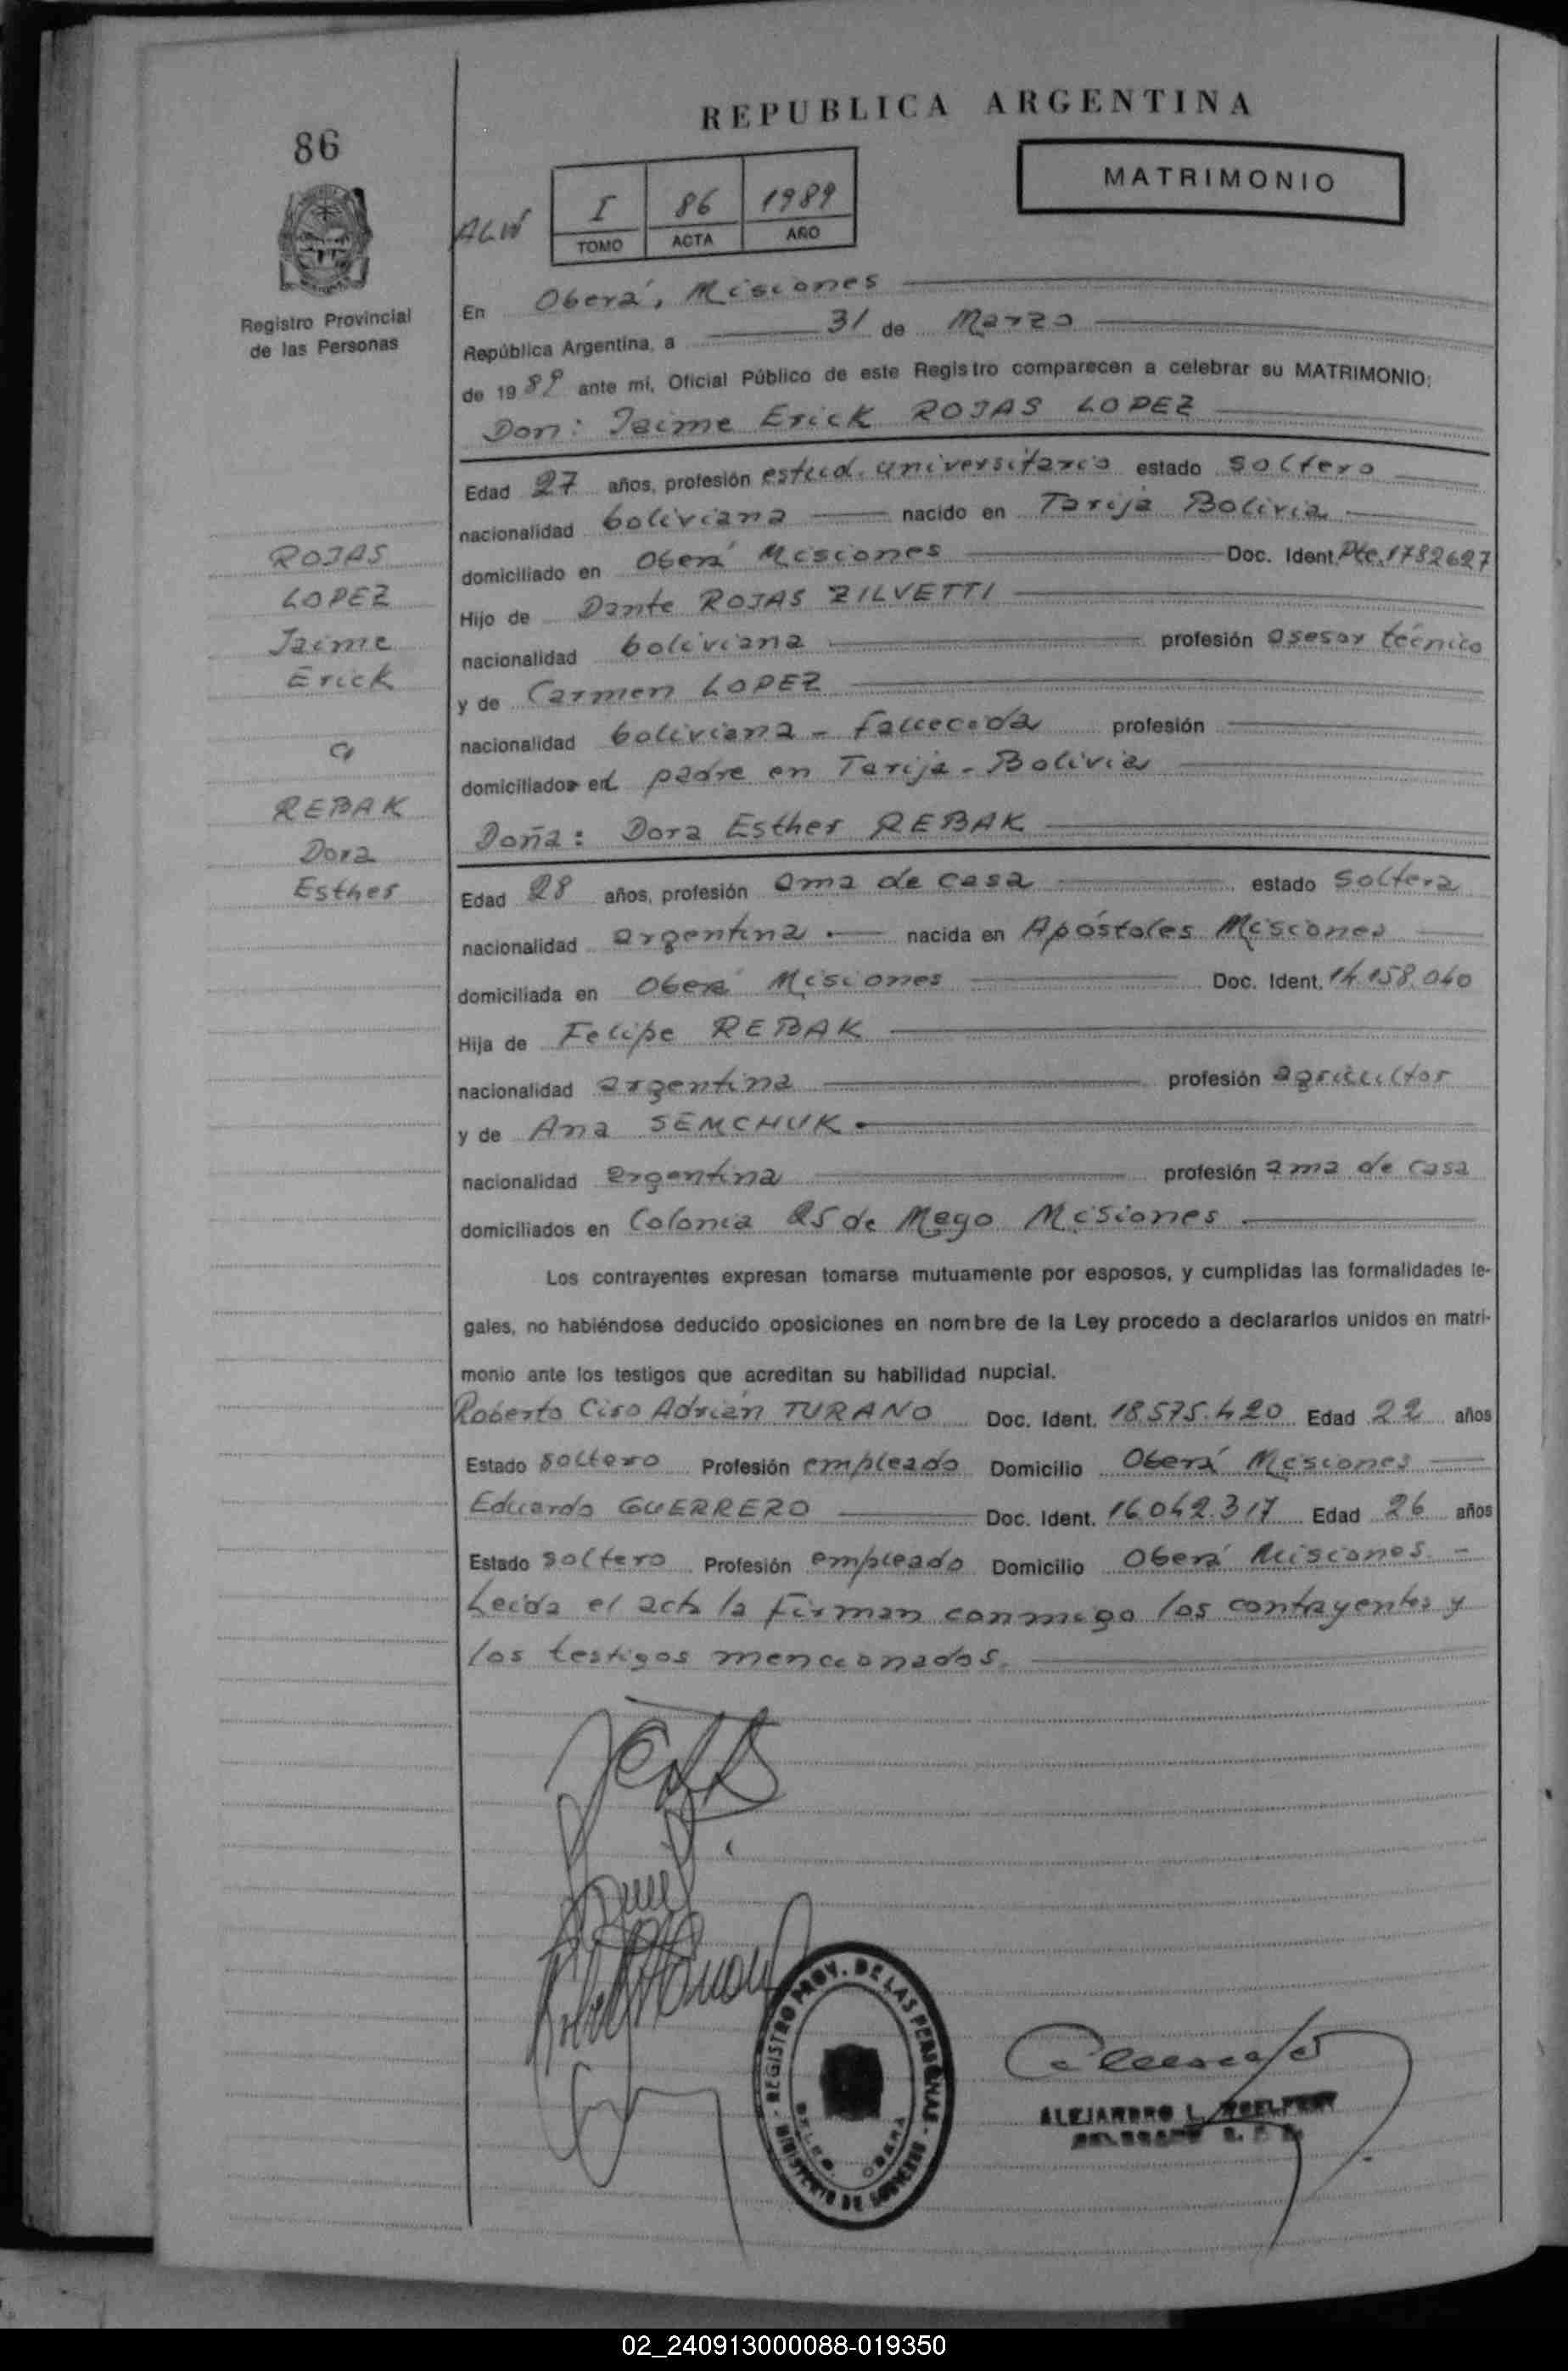 REPUBLICA ARGENTINA
86
MATRIMONIO
I 86 1989
TOMO ACTA AÑO
ALW
Registro Provincial
de las Personas
En Oberá, Misiones
República Argentina, a 31 de Marzo
de 1989 ante mi, Oficial Público de este Registro comparecen a celebrar su MATRIMONIO:
Don: Jaime Erick ROJAS LOPEZ
Edad 27 años, profesión estud. universitario estado soltero
nacionalidad boliviana nacido en Tarija Bolivia
domiciliado en Oberá Misiones Doc. Ident. Pte. 1782627
Hijo de Dante ROJAS ZILVETTI
nacionalidad boliviana profesión asesor técnico
y de Carmen LOPEZ
nacionalidad boliviana - fallecida profesión
domiciliados el padre en Tarija - Bolivia
Doña: Dora Esther REBAK
Edad 28 años, profesión ama de casa estado soltera
nacionalidad argentina nacida en Apóstoles Misiones
domiciliada en Oberá Misiones Doc. Ident. 14.158.040
Hija de Felipe REBAK
nacionalidad argentina profesión agricultor
y de Ana SEMCHUK
nacionalidad argentina profesión ama de casa
domiciliados en Colonia 25 de Mayo Misiones
ROJAS
LOPEZ
Jaime
Erick
c/
REBAK
Dora
Esther
Los contrayentes expresan tomarse mutuamente por esposos, y cumplidas las formalidades le-
gales, no habiéndose deducido oposiciones en nombre de la Ley procedo a declararlos unidos en matri-
monio ante los testigos que acreditan su habilidad nupcial.
Roberto Ciro Adrián TURANO Doc. Ident. 18.575.420 Edad 22 años
Estado soltero Profesión empleado Domicilio Oberá Misiones
Eduardo GUERRERO Doc. Ident. 16.042.317 Edad 26 años
Estado soltero Profesión empleado Domicilio Oberá Misiones -
Leida el acta la firman conmigo los contayentes y
los testigos mencionados.
REGISTRO PROV. DE LAS PERSONAS - MINISTERIO DE GOBIERNO -
DELEG. OBERA
ALEJANDRO L.
02_240913000088-019350